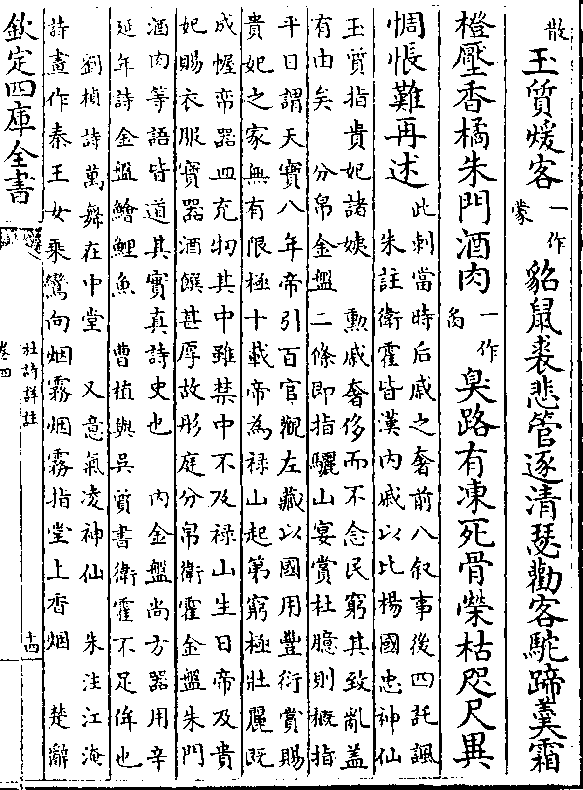 散 玉質煖客 一作蒙 貂鼠裘悲管逐清瑟勸客駝蹄羹霜
橙壓香橘朱門酒肉 一作 臭路有凍死骨榮枯咫尺異
惆悵難再述 此刺當時后戚之奢前八叙事後四託諷
朱註衛霍皆漢内戚以比楊國忠神仙
玉質指貴妃諸姨 勲戚奢侈而不念民窮其致亂蓋
有由矣 分帛金盤二條即指驪山宴賞杜臆則概指
平日謂天寶八年帝引百官觀左藏以國用豐衍賞賜
貴妃之家無有限極十載帝為禄山起第窮極壯麗既
成幄帟器皿充牣其中雖禁中不及禄山生日帝及貴
妃賜衣服寶器酒饌甚厚故彤庭分帛衛霍金盤朱門
酒肉等語皆道其實真詩史也 内金盤尚方器用辛
延年詩金盤鱠鯉魚 曹植與吳質書衛霍不足侔也
劉楨詩萬舞在中堂 又意氣凌神仙 朱注江淹
詩畫作秦王女乘鸞向烟霧烟霧指堂上香烟 楚辭
欽定四庫全書
杜詩詳註
卷四
十四